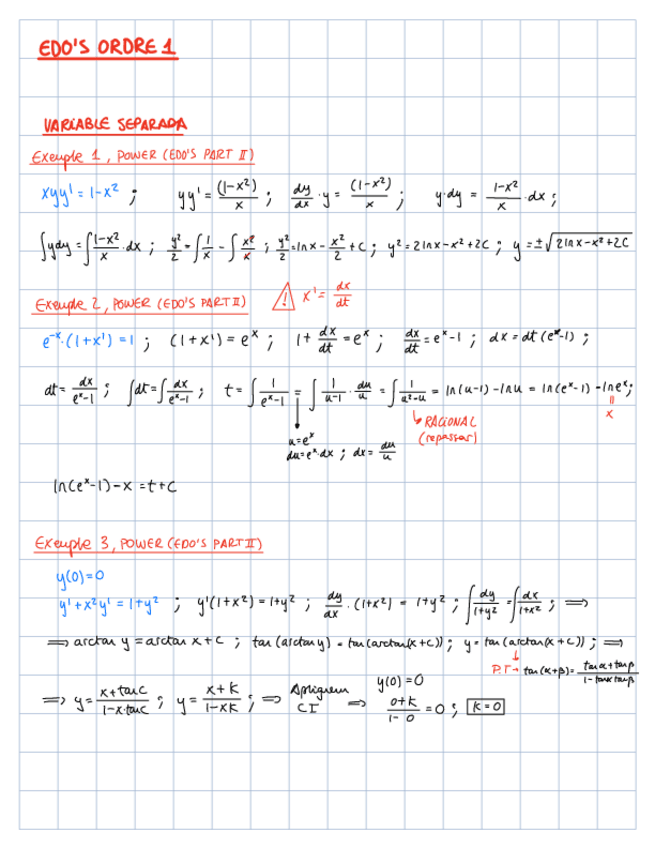 EDO'S ORDRE 1
VARIABLE SEPARADA
Exemple 1, POWER (EDO'S PART II)
xyy' = 1-x² ; yy' = (1-x²)/x ; dy/dx · y = (1-x²)/x ; y·dy = 1-x²/x · dx ;
∫ydy = ∫1-x²/x · dx ; y²/2 = ∫1/x - ∫x²/x ; y²/2 = lnx - x²/2 + C ; y² = 2lnx - x² + 2C ; y = ±√2lnx - x² + 2C
Exemple 2, POWER (EDO'S PART II) ⚠ x' = dx/dt
e⁻ˣ·(1+x') = 1 ; (1+x') = eˣ ; 1 + dx/dt = eˣ ; dx/dt = eˣ-1 ; dx = dt(eˣ-1) ;
dt = dx/eˣ-1 ; ∫dt = ∫dx/eˣ-1 ; t = ∫1/eˣ-1 = ∫1/u-1 · du/u = ∫1/u²-u = ln(u-1) - lnu = ln(eˣ-1) - lneˣ ;
↳ RACIONAL
(repassar)
=
x
u = eˣ
du = eˣ·dx ; dx = du/u
ln(eˣ-1) - x = t + C
Exemple 3, POWER (EDO'S PART II)
y(0) = 0
y' + x²y' = 1+y² ; y'(1+x²) = 1+y² ; dy/dx · (1+x²) = 1+y² ; ∫dy/1+y² = ∫dx/1+x² ; ⟹
⟹ arctan y = arctan x + C ; tan(arctan y) = tan(arctan(x+C)) ; y = tan(arctan(x+C)) ; ⟹
P.T → tan(α+β) = tanα + tanβ/1 - tanα tanβ
⟹ y = x+tanC/1-x·tanC ; y = x+K/1-xK ; ⟹ Apliquem CI ⟹ y(0) = 0
0+K/1-0 = 0 ; K = 0